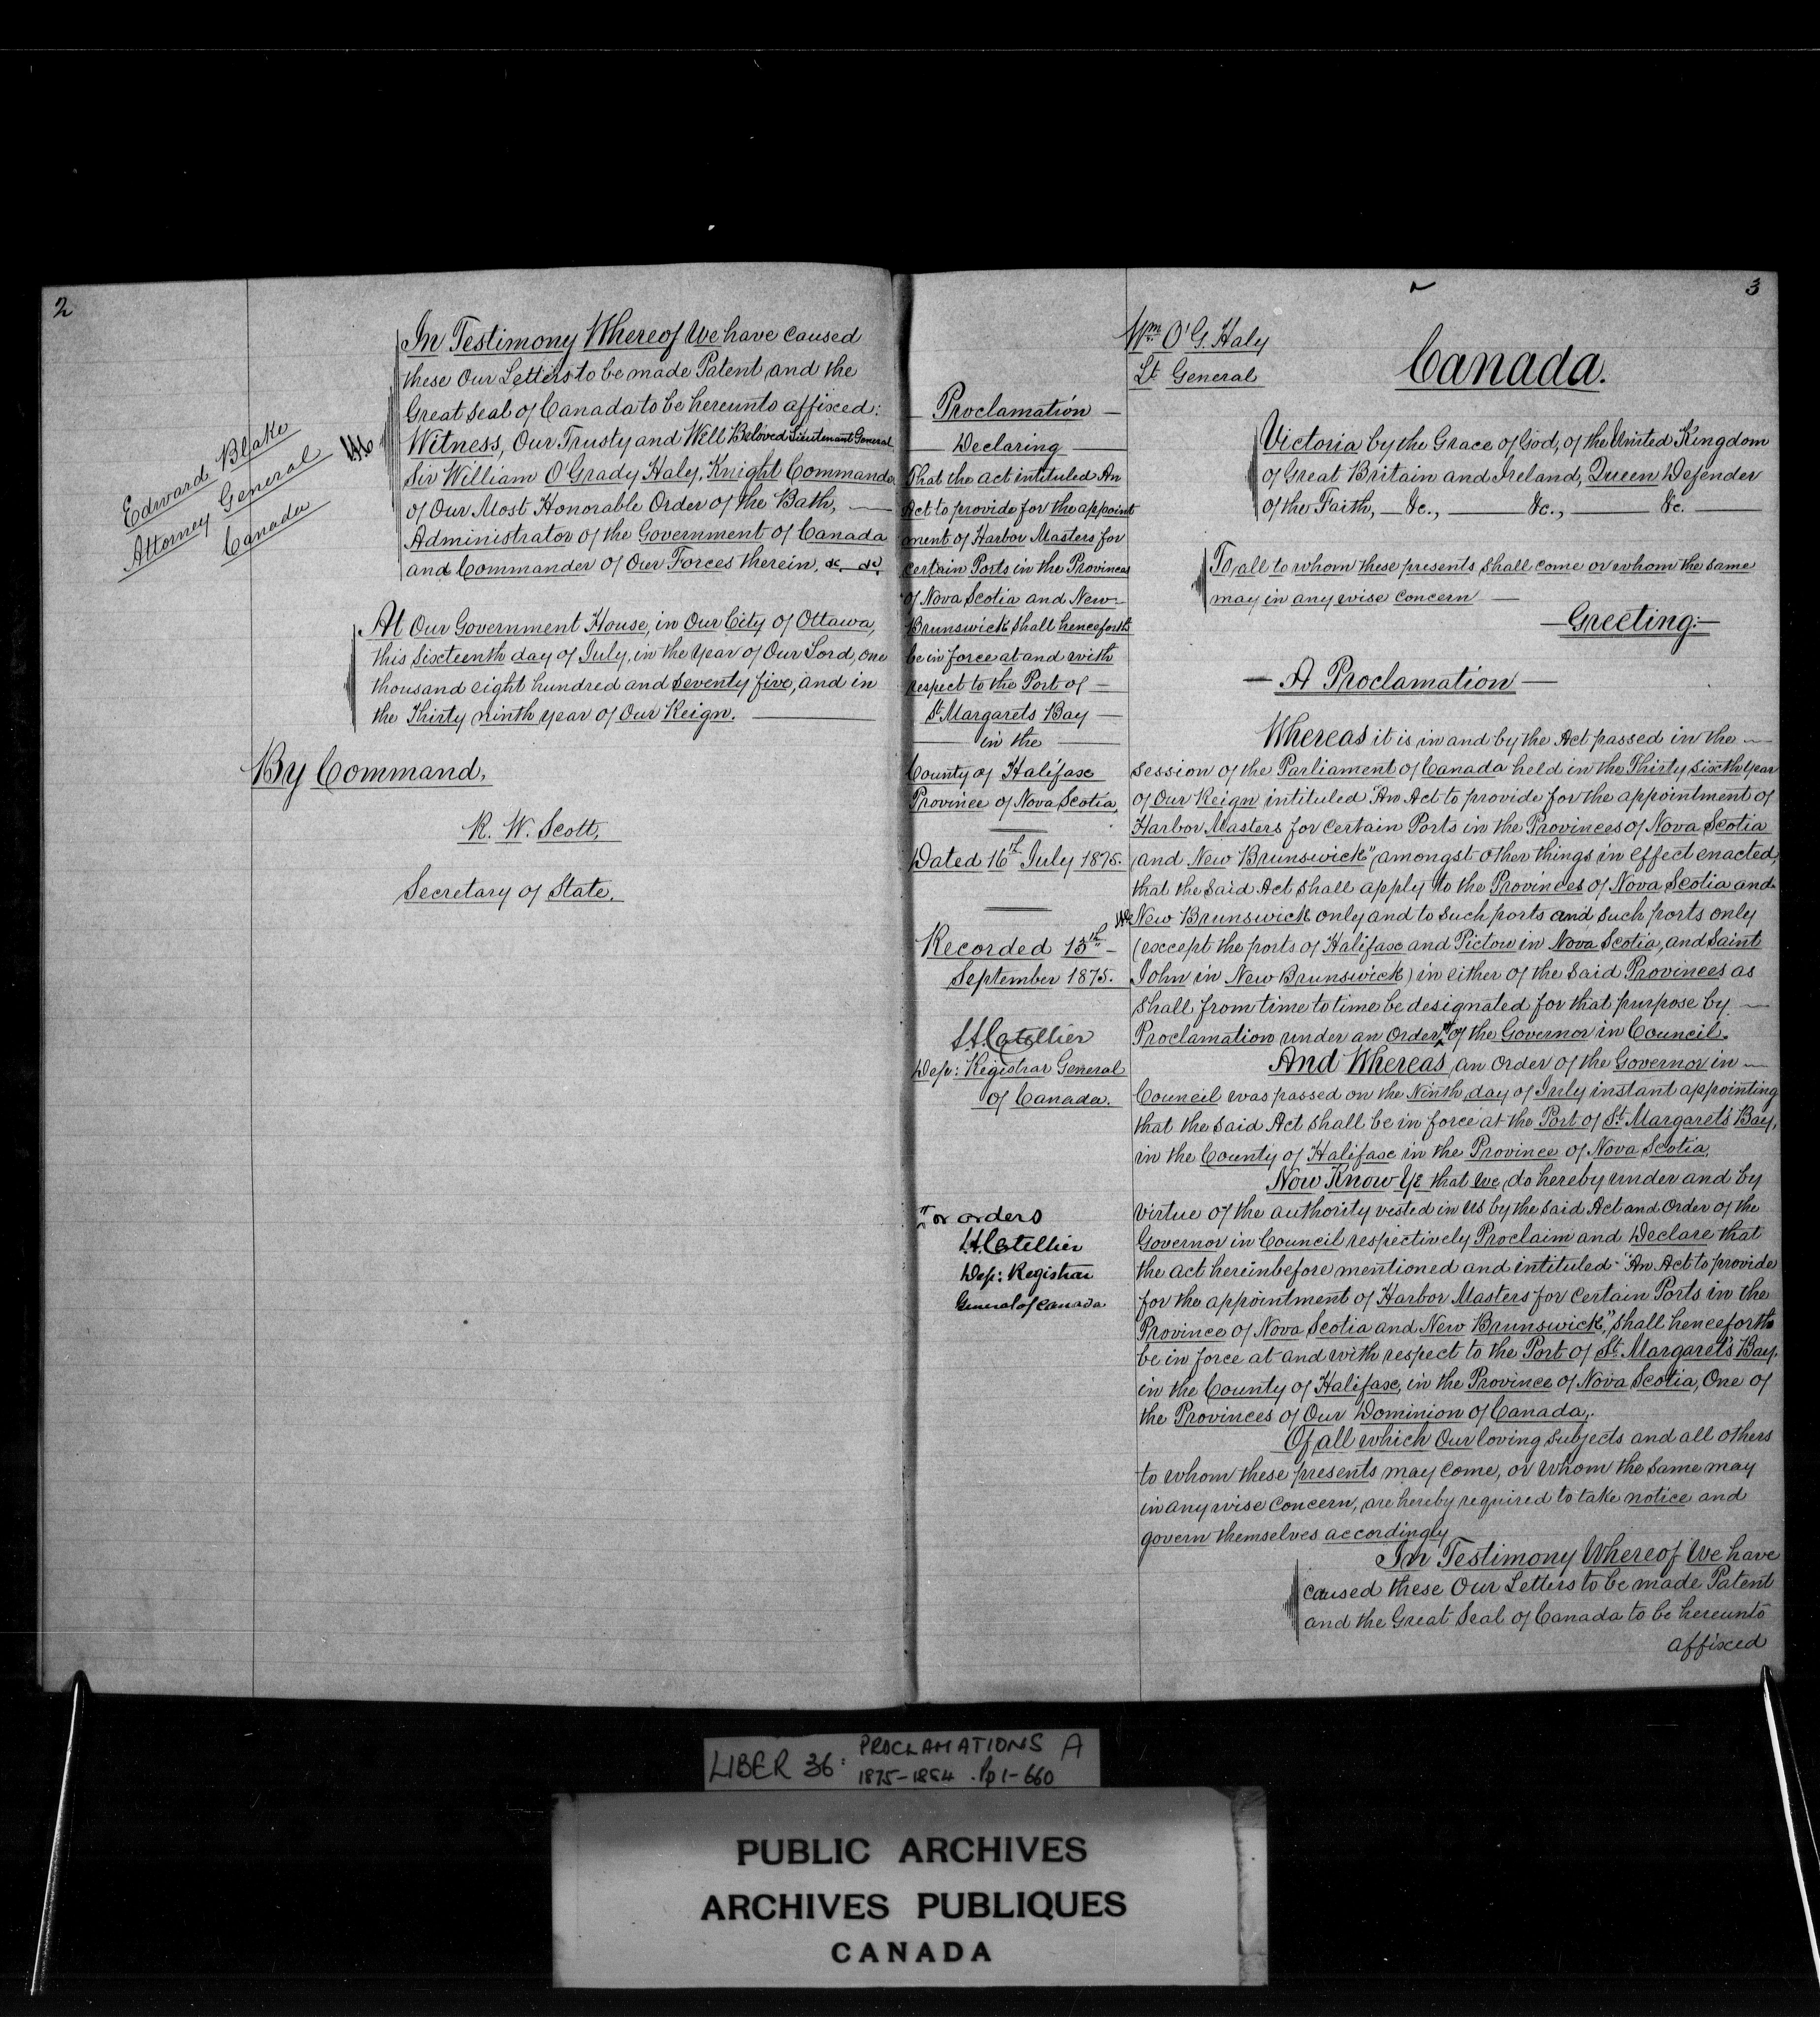 2
In Testimony Whereof We have caused
these Our Letters to be made Patent and the
Great Seal of Canada to be hereunto affixed:
Witness, Our Trusty and Well Beloved Lieutenant General
Sir William O'Grady Haly, Knight Commander
of Our Most Honorable Order of the Bath,
Administrator of the Government of Canada
and Commander of Our Forces therein, &c. &c.
Edward Blake
Attorney General
Canada
At Our Government House, in Our City of Ottawa,
this Sixteenth day of July, in the Year of Our Lord, one
thousand eight hundred and Seventy five, and in
the Thirty ninth year of Our Reign.
By Command,
R. W. Scott,
Secretary of State.
3
Wm. O'G. Haly
Lt. General
Canada.
Proclamation
Declaring
That the act intituled An
Act to provide for the appoint
ment of Harbor Masters for
certain Ports in the Provinces
of Nova Scotia and New
Brunswick, shall henceforth
be in force at and with
respect to the Port of
St. Margarets Bay
in the
County of Halifax
Province of Nova Scotia,
Dated 16th July 1875.
Recorded 13th
September 1875.
L.A. Catellier
Dep: Registrar General
of Canada.
For orders
L.A. Catellier
Dep: Registrar
General of Canada
Victoria by the Grace of God, of the United Kingdom
of Great Britain and Ireland, Queen Defender
of the Faith, — &c., — &c., — &c. —
To all to whom these presents shall come or whom the same
may in any wise concern —
— Greeting: —
— A Proclamation —
Whereas it is in and by the Act passed in the —
session of the Parliament of Canada held in the Thirty sixth Year
of Our Reign intituled "An Act to provide for the appointment of
Harbor Masters for certain Ports in the Provinces of Nova Scotia
and New Brunswick" amongst other things in effect enacted,
that the said Act shall apply to the Provinces of Nova Scotia and
New Brunswick only and to such ports and such ports only
(except the ports of Halifax and Pictou in Nova Scotia, and Saint
John in New Brunswick) in either of the said Provinces as
shall from time to time be designated for that purpose by —
Proclamation under an Order of the Governor in Council.
And Whereas an Order of the Governor in —
Council was passed on the Ninth day of July instant appointing
that the said Act shall be in force at the Port of St. Margaret's Bay,
in the County of Halifax in the Province of Nova Scotia,
Now Know Ye that We, do hereby under and by
virtue of the authority vested in Us by the said Act and Order of the
Governor in Council respectively Proclaim and Declare that
the act hereinbefore mentioned and intituled "An Act to provide
for the appointment of Harbor Masters for certain Ports in the
Province of Nova Scotia and New Brunswick," shall henceforth
be in force at and with respect to the Port of St. Margaret's Bay,
in the County of Halifax, in the Province of Nova Scotia, One of
the Provinces of Our Dominion of Canada.
Of all which Our loving subjects and all others
to whom these presents may come, or whom the same may
in any wise concern, are hereby required to take notice and
govern themselves accordingly
In Testimony Whereof We have
caused these Our Letters to be made Patent
and the Great Seal of Canada to be hereunto
affixed
LIBER 36: PROCLAMATIONS A
1875-1884 . Pp 1-660
PUBLIC ARCHIVES
ARCHIVES PUBLIQUES
CANADA